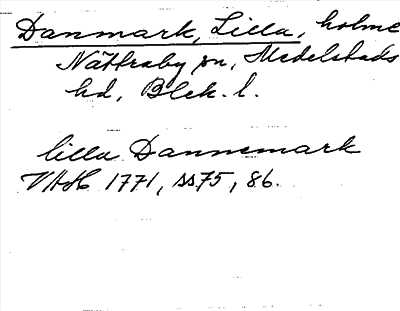 Danmark, Lilla, holme
Nättraby sn, Medelstads
hd, Blek. l.
lilla Dannemark
VAH 1771, ss 75, 86.